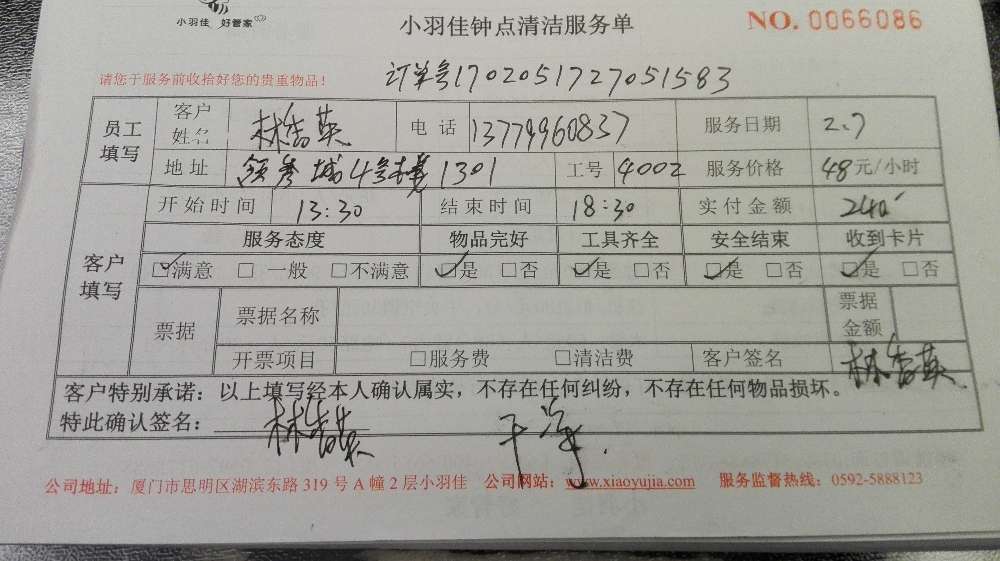 小羽佳 好管家
小羽佳钟点清洁服务单
NO. 0066086
请您于服务前收拾好您的贵重物品！
订单号1702051727051583
员工填写 客户姓名 林香英 电话 13779960837 服务日期 2.7
地址 领秀城4号楼1301 工号 4002 服务价格 48元/小时
客户填写 开始时间 13:30 结束时间 18:30 实付金额 240
服务态度 物品完好 工具齐全 安全结束 收到卡片
☑满意 □一般 □不满意 ☑是 □否 ☑是 □否 ☑是 □否 ☑是 □否
票据 票据名称 票据金额
开票项目 □服务费 □清洁费 客户签名 林香英
客户特别承诺：以上填写经本人确认属实，不存在任何纠纷，不存在任何物品损坏。
特此确认签名： 林香英 干净.
公司地址：厦门市思明区湖滨东路 319 号 A 幢 2 层小羽佳 公司网站：www.xiaoyujia.com 服务监督热线：0592-5888123